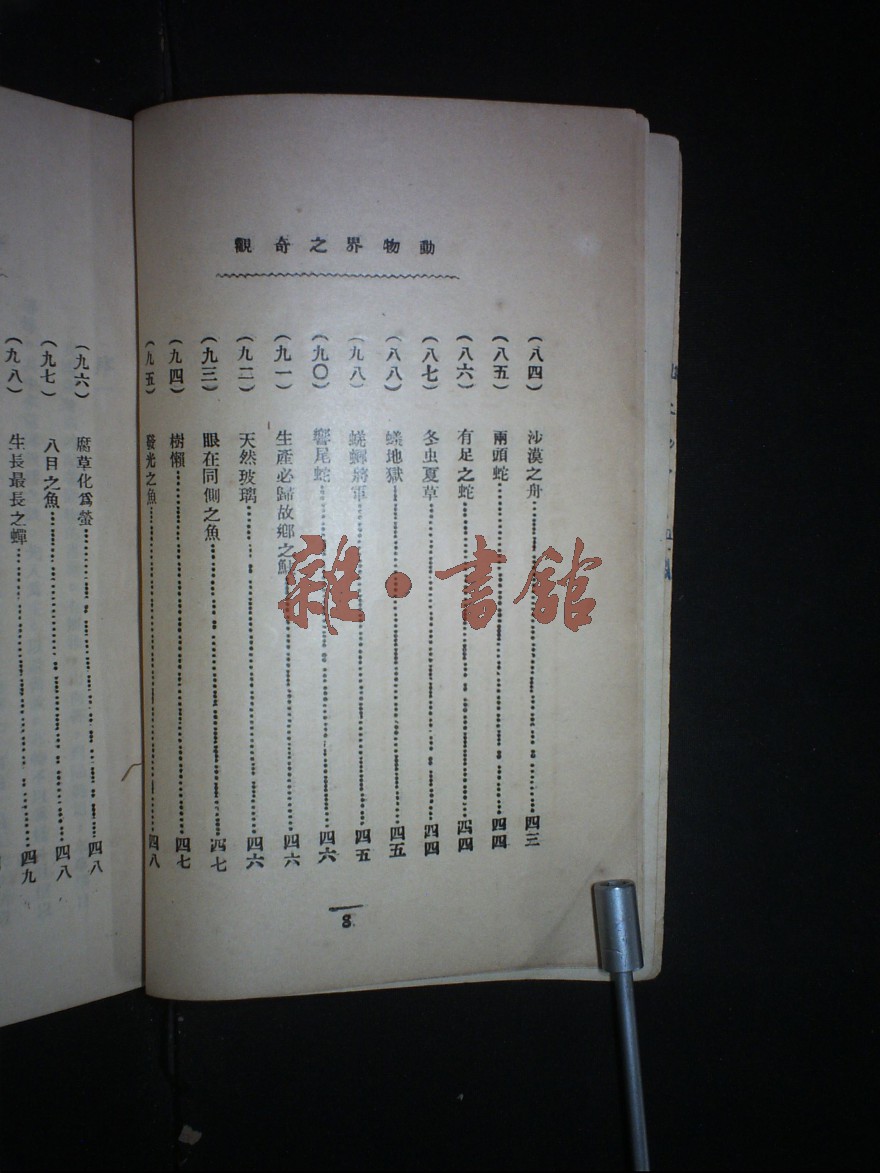 動物界之奇觀
(八四) 沙漠之舟……四三
(八五) 兩頭蛇……四四
(八六) 有足之蛇……四四
(八七) 冬虫夏草……四四
(八八) 蟻地獄……四五
(九八) 將軍……四五
(九〇) 響尾蛇……四六
(九一) 生產必歸故鄉之……四六
(九二) 天然玻璃……四六
(九三) 眼在同側之魚……四七
(九四) 樹懶……四七
(九五) 發光之魚……四八
8
(九六) 腐草化爲螢……四八
(九七) 八目之魚……四八
(九八) 生長最長之蟬……四九
雜·書館